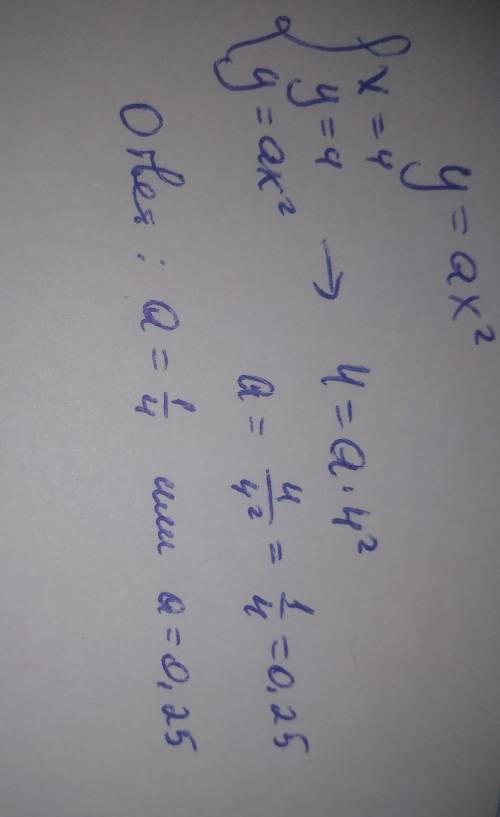 y = ax²
{ x = 4
y = 4
y = ax² → 4 = a · 4²
a = 4/4² = 1/4 = 0,25
Ответ : a = 1/4 или a = 0,25